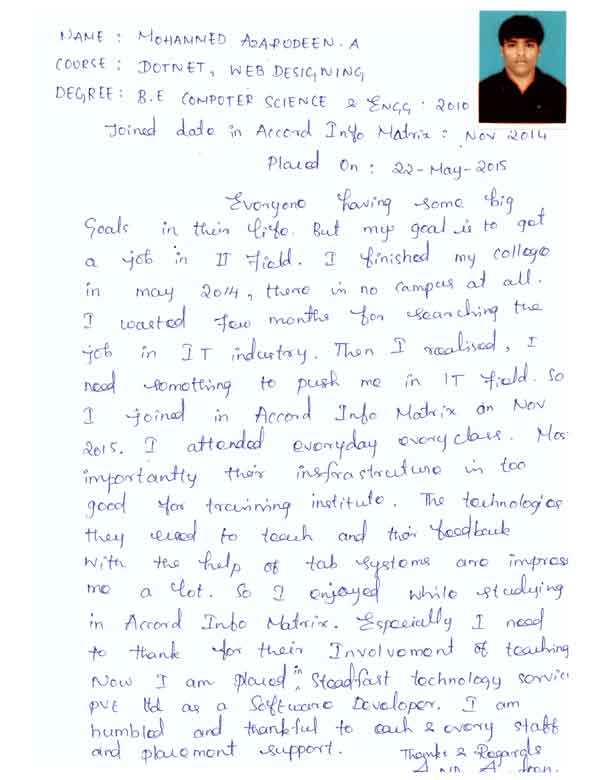 NAME : MOHAMMED AZARUDEEN.A
COURSE : DOTNET, WEB DESIGNING
DEGREE : B.E COMPUTER SCIENCE & ENGG. 2010
Joined date in Accord Info Matrix : Nov 2014
Placed On : 22-May-2015
Everyone having some big
Goals in their life. But my goal is to get
a job in IT Field. I finished my college
in may 2014, there is no campus at all.
I wasted few months for searching the
job in IT industry. Then I realised, I
need something to push me in IT field. So
I joined in Accord Info Matrix on Nov
2015. I attended everyday every class. Mos
importantly their insfrastruture is too
good for trainning institute. The technologies
they used to teach and their feedback
with the help of tab systems are impres
me a lot. So I enjoyed while studying
in Accord Info Matrix. Especially I need
to thank for their Involvement of teaching
Now I am placed in Steadfast technology servic
pvt ltd as a Software Developer. I am
humbled and thankful to each & every staff
and placement support. Thanks & Regards